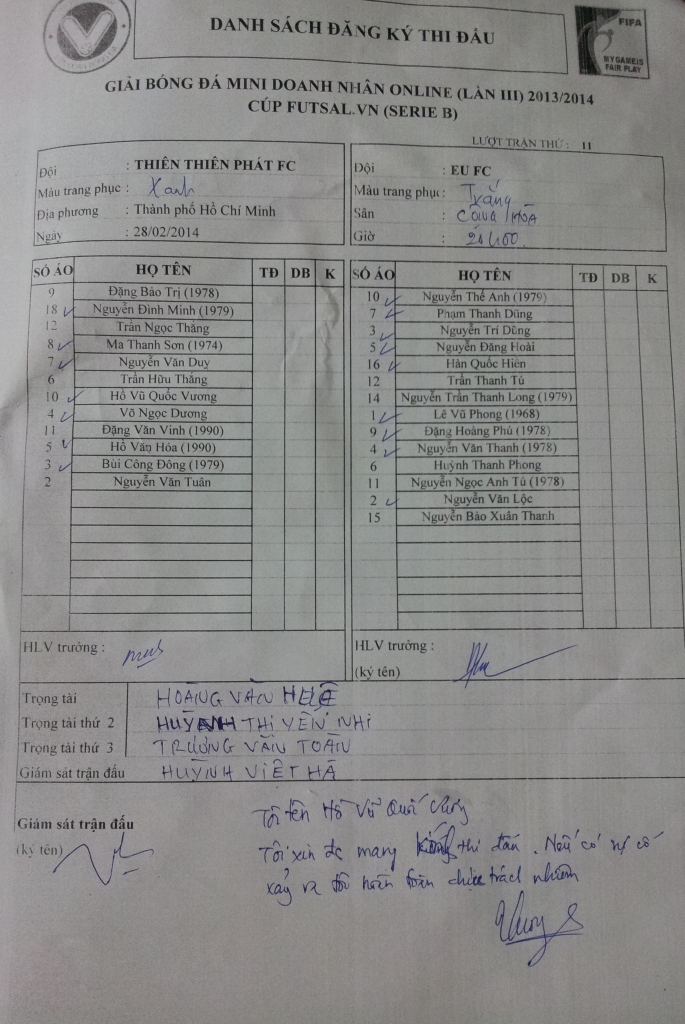 DANH SÁCH ĐĂNG KÝ THI ĐẤU
FIFA
MY GAME IS
FAIR PLAY
GIẢI BÓNG ĐÁ MINI DOANH NHÂN ONLINE (LẦN III) 2013/2014
CÚP FUTSAL.VN (SERIE B)
LƯỢT TRẬN THỨ : 11
Đội : THIÊN THIÊN PHÁT FC
Màu trang phục : Xanh
Địa phương : Thành phố Hồ Chí Minh
Ngày : 28/02/2014
Đội : EU FC
Màu trang phục : Trắng
Sân : CỘNG HÒA
Giờ
SỐ ÁO HỌ TÊN TĐ DB K
9 Đặng Bảo Trị (1978)
18 Nguyễn Đình Minh (1979)
12 Trần Ngọc Thăng
8 Ma Thanh Sơn (1974)
7 Nguyễn Văn Duy
6 Trần Hữu Thắng
10 Hồ Vũ Quốc Vương
4 Võ Ngọc Dương
11 Đặng Văn Vinh (1990)
5 Hồ Văn Hóa (1990)
3 Bùi Công Đông (1979)
2 Nguyễn Văn Tuân
SỐ ÁO HỌ TÊN TĐ DB K
10 Nguyễn Thế Anh (1979)
7 Phạm Thanh Dũng
3 Nguyễn Trí Dũng
5 Nguyễn Đăng Hoài
16 Hàn Quốc Hiền
12 Trần Thanh Tú
14 Nguyễn Trần Thanh Long (1979)
1 Lê Vũ Phong (1968)
9 Đặng Hoàng Phú (1978)
4 Nguyễn Văn Thanh (1978)
6 Huỳnh Thanh Phong
11 Nguyễn Ngọc Anh Tú (1978)
2 Nguyễn Văn Lộc
15 Nguyễn Bảo Xuân Thanh
HLV trưởng :
HLV trưởng :
(ký tên)
Trọng tài HOÀNG VĂN
Trọng tài thứ 2 HUỲNH THỊ YẾN NHI
Trọng tài thứ 3 TRƯƠNG VĂN TOÀN
Giám sát trận đấu HUỲNH VIẾT HÀ
Giám sát trận đấu
(ký tên)
Tôi tên Hồ Vũ Quốc Vương
Tôi xin đc mang kiếng thi đấu. Nếu có sự cố
xảy ra tôi hoàn toàn chịu trách nhiệm